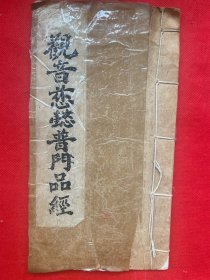 觀音慈懿普門品經